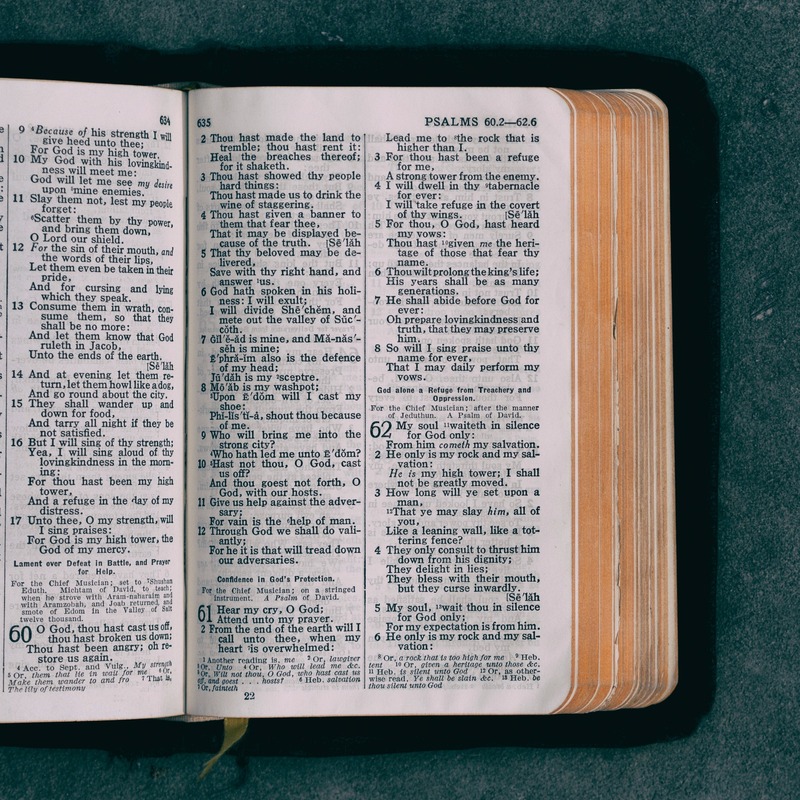 634
9 ⁴Because of his strength I will
give heed unto thee;
For God is my high tower.
10 My God with his lovingkind-
ness will meet me:
God will let me see my desire
upon ⁵mine enemies.
11 Slay them not, lest my people
forget:
⁶Scatter them by thy power,
and bring them down,
O Lord our shield.
12 For the sin of their mouth, and
the words of their lips,
Let them even be taken in their
pride,
And for cursing and lying
which they speak.
13 Consume them in wrath, con-
sume them, so that they
shall be no more:
And let them know that God
ruleth in Jacob,
Unto the ends of the earth.
[Sē´lăh
14 And at evening let them re-
turn, let them howl like a dog,
And go round about the city.
15 They shall wander up and
down for food,
And tarry all night if they be
not satisfied.
16 But I will sing of thy strength;
Yea, I will sing aloud of thy
lovingkindness in the morn-
ing:
For thou hast been my high
tower,
And a refuge in the day of my
distress.
17 Unto thee, O my strength, will
I sing praises:
For God is my high tower, the
God of my mercy.
Lament over Defeat in Battle, and Prayer
for Help.
For the Chief Musician; set to ⁷Shushan
Eduth. Michtam of David, to teach;
when he strove with Aram-naharaim and
with Aramzobah, and Joab returned, and
smote of Edom in the Valley of Salt
twelve thousand.
60 O God, thou hast cast us off,
thou hast broken us down;
Thou hast been angry; oh re-
store us again.
⁴ Acc. to Sept. and Vulg., My strength
⁵ Or, them that lie in wait for me ⁶ Or,
Make them wander to and fro ⁷ That is,
The lily of testimony
635
2 Thou hast made the land to
tremble; thou hast rent it:
Heal the breaches thereof;
for it shaketh.
3 Thou hast showed thy people
hard things:
Thou hast made us to drink the
wine of staggering.
4 Thou hast given a banner to
them that fear thee,
That it may be displayed be-
cause of the truth. [Sē´lăh
5 That thy beloved may be de-
livered,
Save with thy right hand, and
answer ¹us.
6 God hath spoken in his holi-
ness: I will exult;
I will divide Shē´chĕm, and
mete out the valley of Sŭc´-
cōth.
7 Gĭl´ē-ăd is mine, and Mā-năs´-
sĕh is mine;
Ē´phrā-ĭm also is the defence
of my head;
Jū´dăh is my ²sceptre.
8 Mō´ăb is my washpot;
³Upon Ē´dŏm will I cast my
shoe:
Phĭ-lĭs´tĭ-ȧ, shout thou because
of me.
9 Who will bring me into the
strong city?
⁴Who hath led me unto Ē´dŏm?
10 ⁵Hast not thou, O God, cast
us off?
And thou goest not forth, O
God, with our hosts.
11 Give us help against the adver-
sary;
For vain is the ⁶help of man.
12 Through God we shall do vali-
antly;
For he it is that will tread down
our adversaries.
Confidence in God's Protection.
For the Chief Musician; on a stringed
instrument. A Psalm of David.
61 Hear my cry, O God;
Attend unto my prayer.
2 From the end of the earth will I
call unto thee, when my
heart ⁷is overwhelmed:
¹ Another reading is, me ² Or, lawgiver
³ Or, Unto ⁴ Or, Who will lead me &c.
⁵ Or, Wilt not thou, O God, who hast cast us
off, and goest . . . hosts? ⁶ Heb. salvation
⁷ Or, fainteth
22
PSALMS 60.2—62.6
Lead me to ⁸the rock that is
higher than I.
3 For thou hast been a refuge
for me,
A strong tower from the enemy.
4 I will dwell in thy ⁹tabernacle
for ever:
I will take refuge in the covert
of thy wings. [Sē´lăh
5 For thou, O God, hast heard
my vows:
Thou hast ¹⁰given me the heri-
tage of those that fear thy
name.
6 Thou wilt prolong the king's life;
His years shall be as many
generations.
7 He shall abide before God for
ever:
Oh prepare lovingkindness and
truth, that they may preserve
him.
8 So will I sing praise unto thy
name for ever,
That I may daily perform my
vows.
God alone a Refuge from Treachery and
Oppression.
For the Chief Musician; after the manner
of Jeduthun. A Psalm of David.
62 My soul ¹¹waiteth in silence
for God only:
From him cometh my salvation.
2 He only is my rock and my sal-
vation:
He is my high tower; I shall
not be greatly moved.
3 How long will ye set upon a
man,
¹²That ye may slay him, all of
you,
Like a leaning wall, like a tot-
tering fence?
4 They only consult to thrust him
down from his dignity;
They delight in lies;
They bless with their mouth,
but they curse inwardly.
[Sē´lăh
5 My soul, ¹³wait thou in silence
for God only;
For my expectation is from him.
6 He only is my rock and my sal-
vation:
⁸ Or, a rock that is too high for me ⁹ Heb.
tent ¹⁰ Or, given a heritage unto those &c.
¹¹ Heb. is silent unto God ¹² Or, as other-
wise read, Ye shall be slain &c. ¹³ Heb. be
thou silent unto God